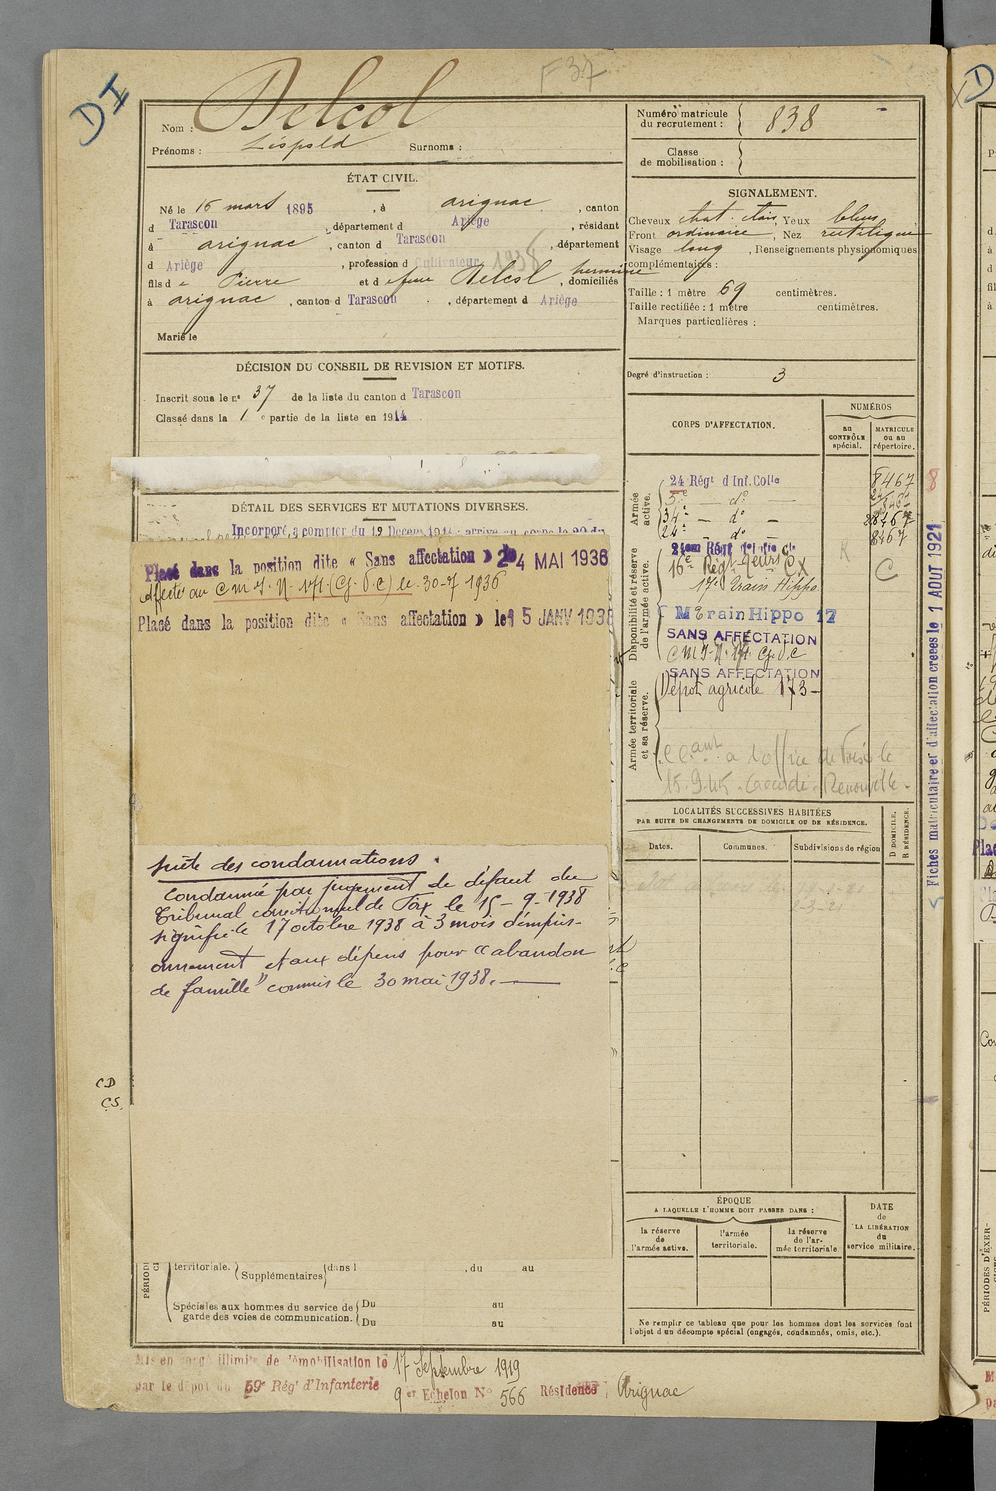 DI
F 37
Nom : Delcol
Prénoms : Léopold Surnoms :
ÉTAT CIVIL.
Né le 16 mars 1895, à arignac, canton
d Tarascon, département d Ariège, résidant
à arignac, canton d Tarascon, département
d Ariège, profession d Cultivateur 1938
fils de Pierre et d feue Delcol hermine, domiciliés
à arignac, canton d Tarascon, département d Ariège
Marié le
DÉCISION DU CONSEIL DE REVISION ET MOTIFS.
Inscrit sous le n° 37 de la liste du canton d Tarascon
Classé dans la 1e partie de la liste en 1914
DÉTAIL DES SERVICES ET MUTATIONS DIVERSES.
Incorporé à compter du 19 Decem 1914 : arrivé au corps le 20 du
Placé dans la position dite « Sans affectation » le 24 MAI 1936
Affecté au C M I. N. 171 (G. V. C) le 30-7 1936
Placé dans la position dite « Sans affectation » le 15 JANV 1938
suite des condamnations.
Condamné par jugement de défaut du
Tribunal correctionnel de Foix le 15-9-1938
signifié le 17 octobre 1938 à 3 mois d'empris-
onnement et aux dépens pour "abandon
de famille" commis le 30 mai 1938.
CD
CS.
territoriale. Supplémentaires dans l , du au
Spéciales aux hommes du service de garde des voies de communication. Du au
Du au
Mis en congé illimité de démobilisation le 17 Septembre 1919
par le dépôt du 59e Régt d'Infanterie
9e Echelon N° 566 Résidence : Arignac
Numéro matricule du recrutement : 838
Classe de mobilisation :
SIGNALEMENT.
Cheveux chat. clair, Yeux bleus
Front ordinaire, Nez rectiligne
Visage long, Renseignements physionomiques
complémentaires :
Taille : 1 mètre 69 centimètres.
Taille rectifiée : 1 mètre centimètres.
Marques particulières :
Degré d'instruction : 3
CORPS D'AFFECTATION.
NUMÉROS
au CONTRÔLE spécial.
MATRICULE ou au répertoire.
Armée active.
24 Régt d'Inf. Colle 8467
5e — d° —
34e — d° — 28467
24e — d° — 8467
Disponibilité et réserve de l'armée active.
16e Régt
17e Train Hippo.
M Train Hippo 17
SANS AFFECTATION
C M I. N. 171 G. V. C
SANS AFFECTATION
Armée territoriale et sa réserve.
Dépôt agricole 173 —
C
8
Fiches matriculaire et d'affectation créées le 1 AOUT 1921
LOCALITÉS SUCCESSIVES HABITÉES
PAR SUITE DE CHANGEMENTS DE DOMICILE OU DE RÉSIDENCE.
Dates. Communes. Subdivisions de région
D DOMICILE.
R RÉSIDENCE.
ÉPOQUE
A LAQUELLE L'HOMME DOIT PASSER DANS :
la réserve de l'armée active.
l'armée territoriale.
la réserve de l'armée territoriale
DATE de LA LIBÉRATION du service militaire.
Ne remplir ce tableau que pour les hommes dont les services font
l'objet d'un décompte spécial (engagés, condamnés, omis, etc.).
PÉRIODES D'EXER-